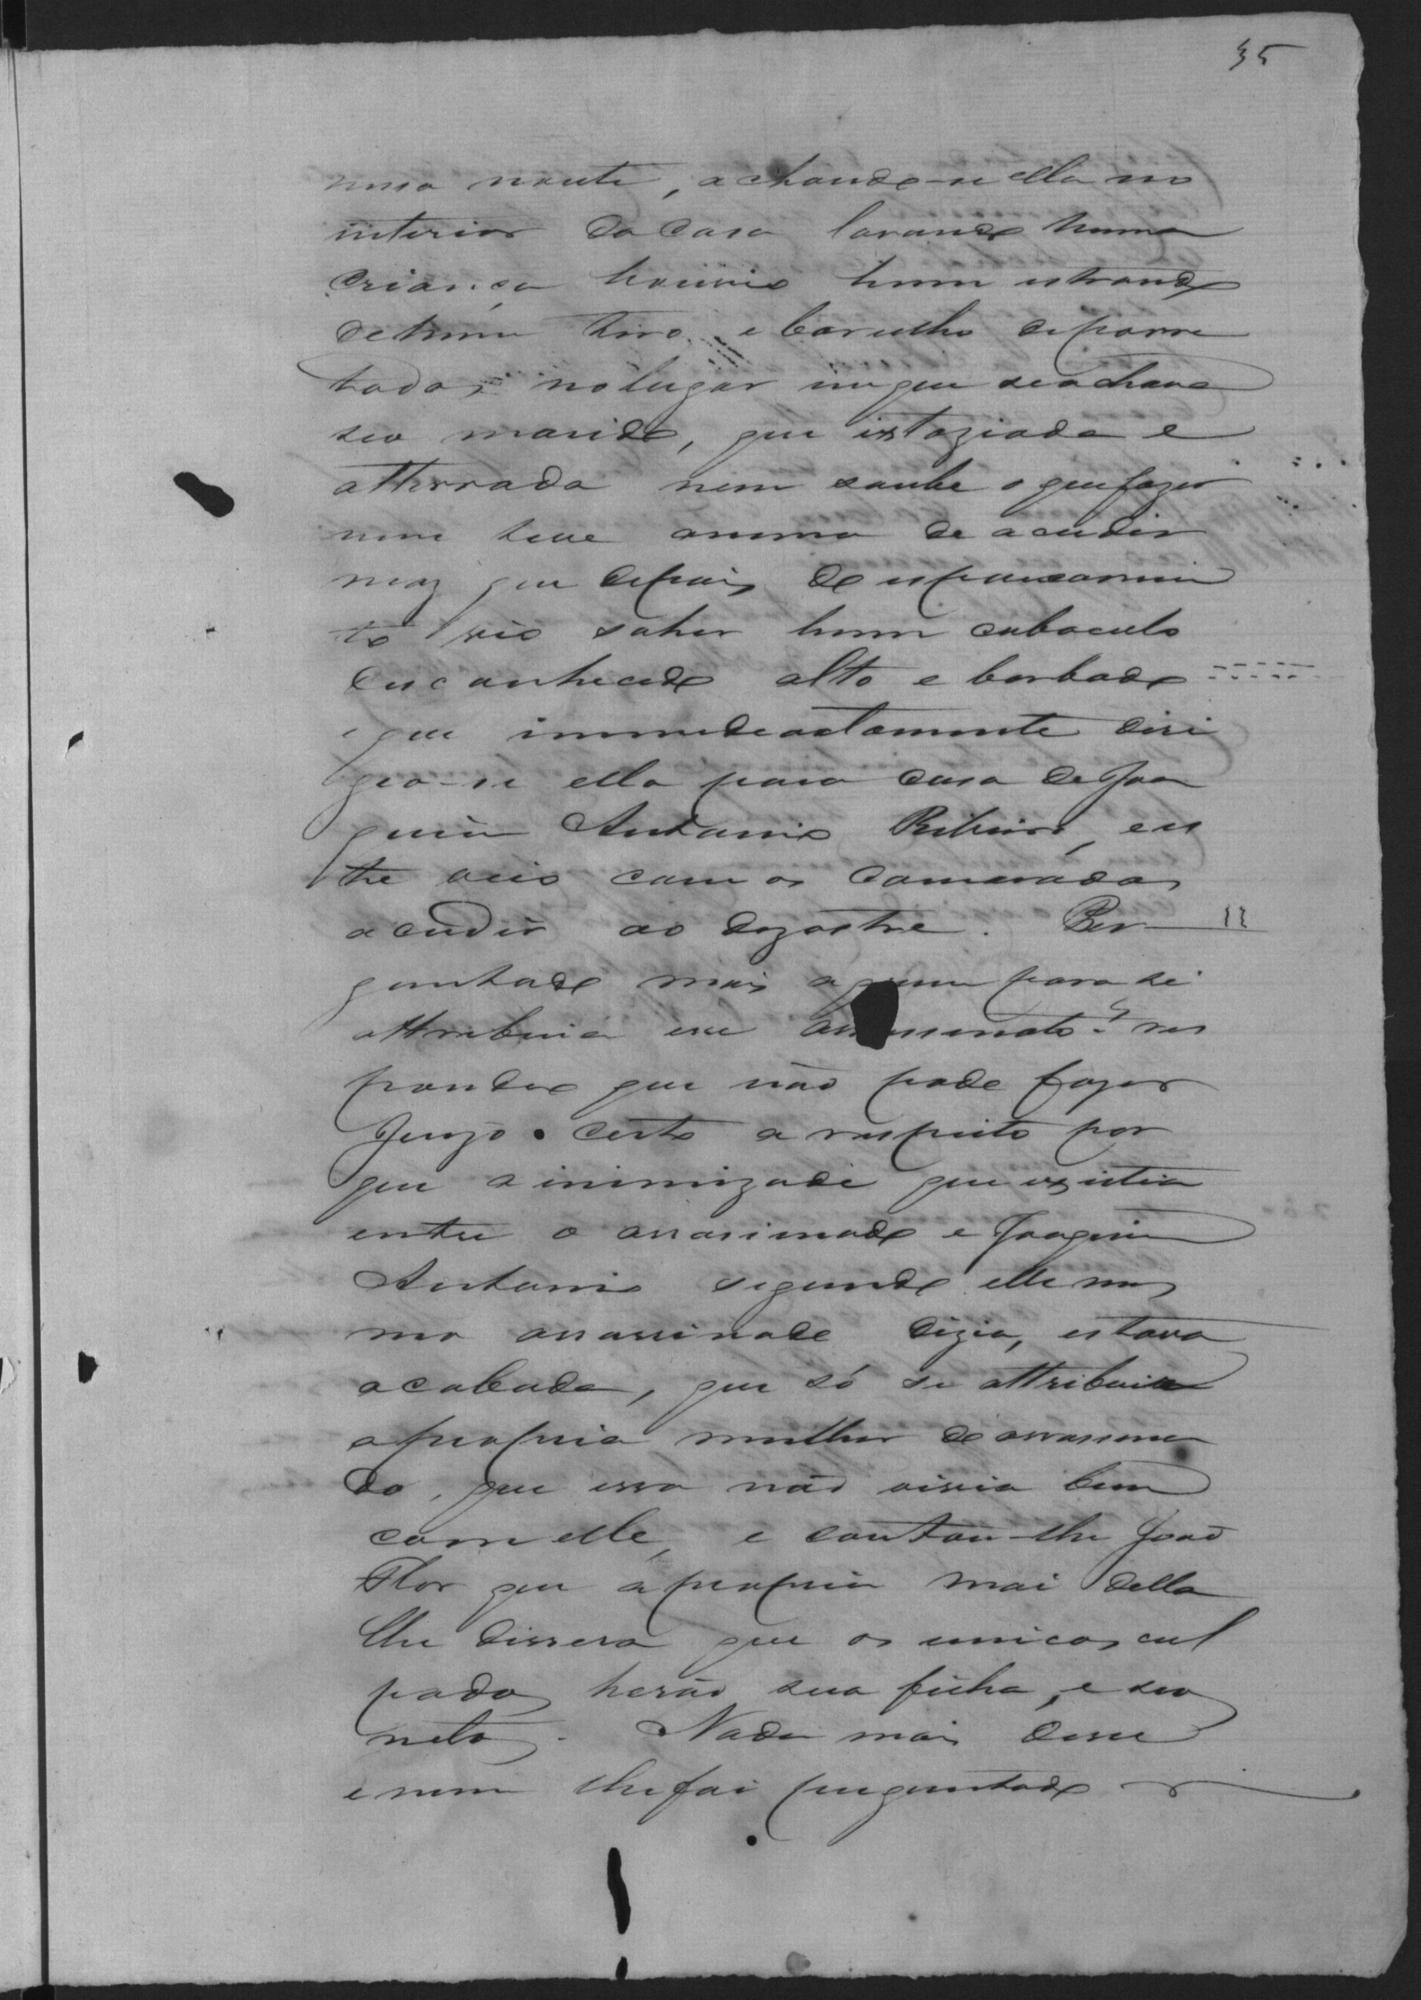 35
nessa noute, achando-se ella no
interior da casa lavando huma
criança houvio hum estrondo
de hum tiro e barulho de porre
tadas no lugar em que se achava
seo marido, que estaziada e
atterrada nem soube o que fazer
nem teve animo de acudir
mas que depois do espancamen
to vio sahir hum cabocolo
desconhecido alto e barbado
e que immediactamente diri
gio-se ella para casa de Joa
quim Antonio Ribeiro, en
tre veio com os camaradas
acudir ao dezastre. Per
guntado mais a quem para si
attribuia esse assassinato? res
pondeo que não pode fazer
Juizo certo a respeito por
que a inimizade que existia
entre o assassinado e Joaquim
Antonio segundo elle mes
mo assassinado dizia, estava
acabada, que só se attribuia
a propria mulher do assassina
do, que essa não vivia bem
com elle, e contou-lhe João
Flor que a propria mai della
lhe dissera que os unicos cul
pados herão sua filha, e seo
neto. Nada mais disse
e nem lhe foi perguntado